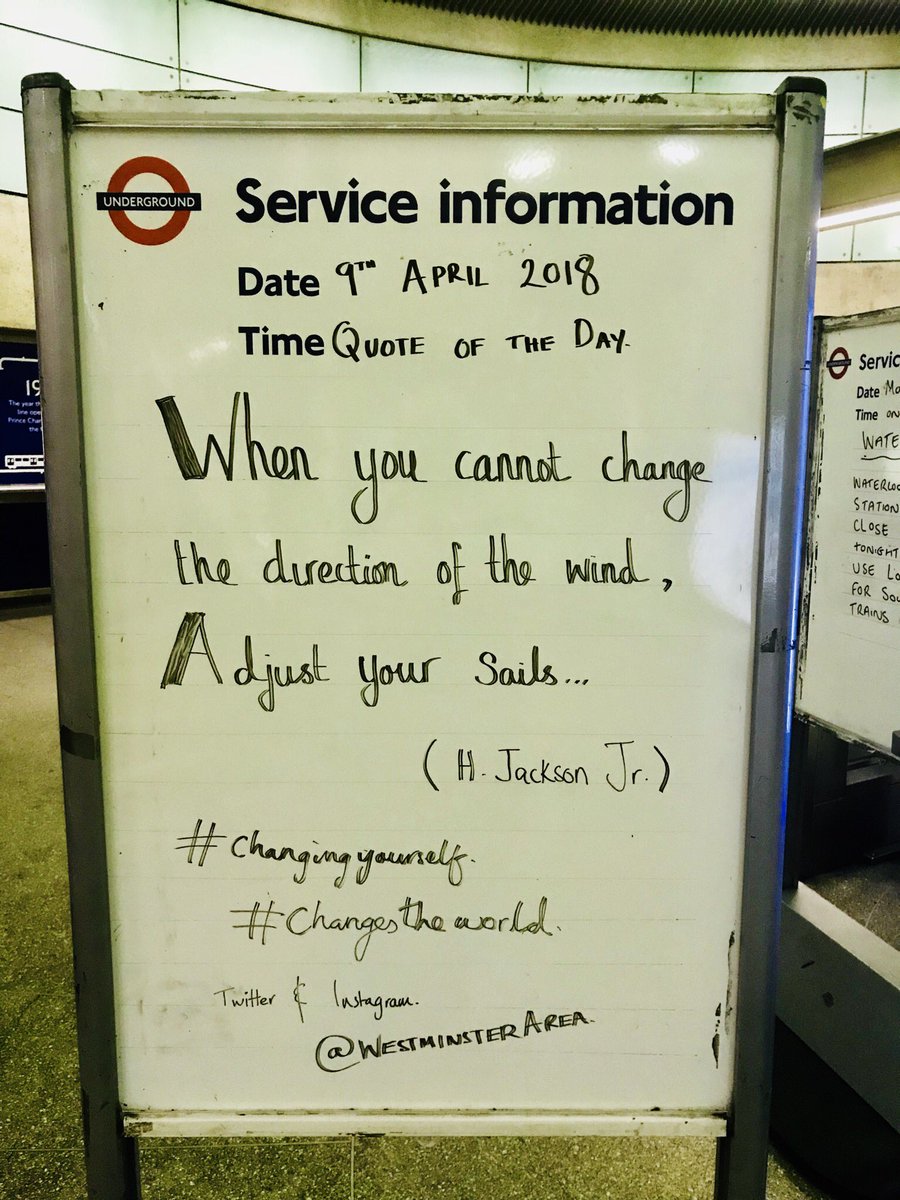 UNDERGROUND
Service information
Date 9TH APRIL 2018
Time QUOTE OF THE DAY.
When you cannot change
the direction of the wind,
Adjust your sails...
(H. Jackson Jr.)
#Changingyourself.
#Changestheworld.
Twitter & Instagram.
@WESTMINSTERAREA.
19
The year th
line ope
Prince Char
UNDERGROUND
Servic
Date Mo
Time on
WATE
WATERLOO
STATION
CLOSE
TONIGHT
USE LO
FOR SOU
TRAINS